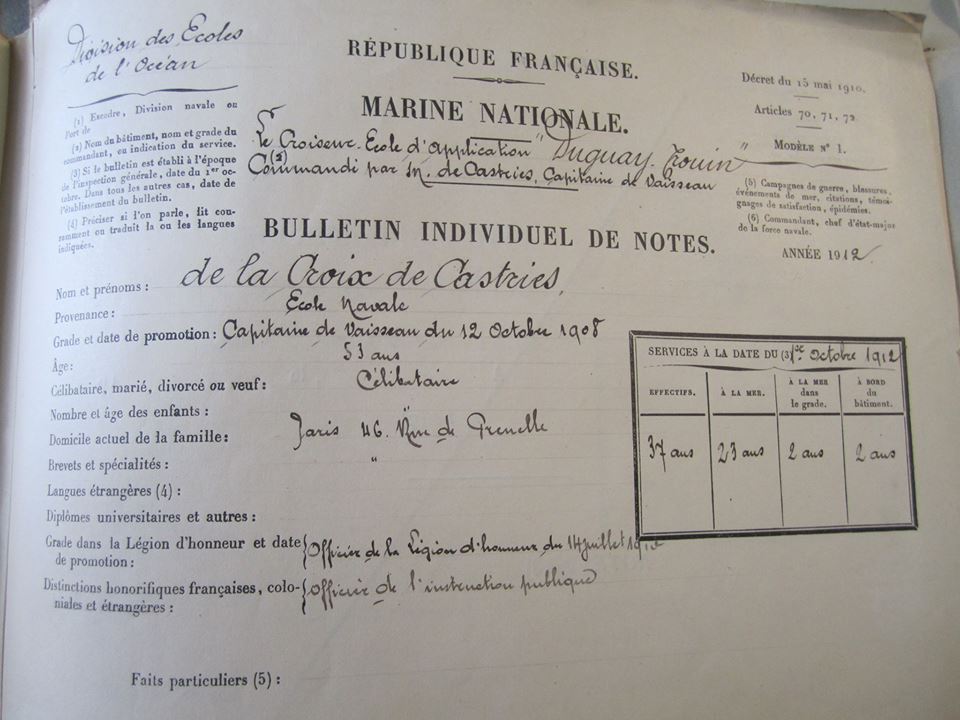 Division des Ecoles
de l'Océan
RÉPUBLIQUE FRANÇAISE.
MARINE NATIONALE.
Décret du 15 mai 1910.
Articles 70, 71, 72
MODÈLE N° 1.
(1) Escadre, Division navale ou
Port de
(2) Nom du bâtiment, nom et grade du
commandant, ou indication du service.
(3) Si le bulletin est établi à l'époque
de l'inspection générale, date du 1er oc-
tobre. Dans tous les autres cas, date de
l'établissement du bulletin.
(4) Préciser si l'on parle, lit cou-
ramment ou traduit la ou les langues
indiquées.
Le Croiseur-Ecole d'Application "Duguay-Trouin"
(2) Commandé par M. de Castries, Capitaine de Vaisseau
(5) Campagnes de guerre, blessures,
événements de mer, citations, témoi-
gnages de satisfaction, épidémies.
(6) Commandant, chef d'état-major
de la force navale.
BULLETIN INDIVIDUEL DE NOTES.
ANNÉE 1912.
Nom et prénoms : de la Croix de Castries,
Provenance : Ecole Navale
Grade et date de promotion : Capitaine de Vaisseau du 12 Octobre 1908
Âge : 53 ans
Célibataire, marié, divorcé ou veuf : Célibataire
Nombre et âge des enfants : "
Domicile actuel de la famille : Paris 46. Rue de Grenelle
Brevets et spécialités : "
Langues étrangères (4) :
Diplômes universitaires et autres :
Grade dans la Légion d'honneur et date
de promotion : Officier de la Légion d'honneur du 14 juillet
Distinctions honorifiques françaises, colo-
niales et étrangères : Officier de l'instruction publique
SERVICES À LA DATE DU (3) 1er Octobre 1912
EFFECTIFS. À LA MER. À LA MER dans le grade. À BORD du bâtiment.
37 ans 23 ans 2 ans 2 ans
Faits particuliers (5) :